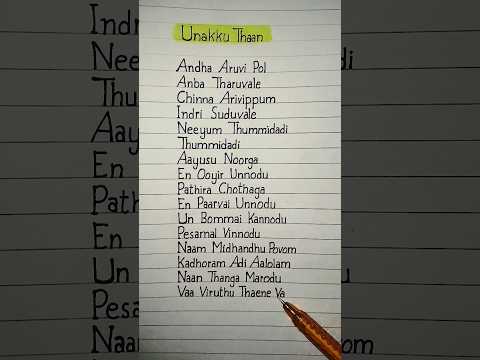 Unakku Thaan
Andha Aruvi Pol
Anba Tharuvale
Chinna Arivippum
Indri Suduvale
Neeyum Thummidadi
Thummidadi
Aayusu Noorga
En Ooyir Unnodu
Pathira Chothaga
En Paarvai Unnodu
Un Bommai Kannodu
Pesamal Vinnodu
Naam Midhandhu Povom
Kadhoram Adi Aalolam
Naan Thanga Marodu
Vaa Viruthu Thaene Va